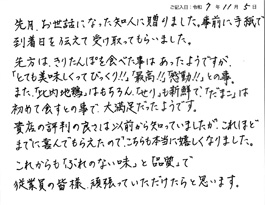 ご記入日(令和 7年 11月 5日
先月、お世話になった知人に贈りました。事前に手紙で
到着日を伝えて受け取ってもらいました。
先方は、きりたんぽを食べた事はあったようですが、
「とても美味しくてびっくり!!」「最高!!」「感動!!」との事。
また、「比内地鶏」はもちろん、「せり」も新鮮で、「だまこ」は
初めて食すとの事で、大満足だったようです。
貴店の評判の良さは以前から知っていましたが、これほど
までに喜んでもらえたので、こちらも本当に嬉しくなりました。
これからも「ぶれのない味」と品質」で
従業員の皆様、頑張っていただけたらと思います。